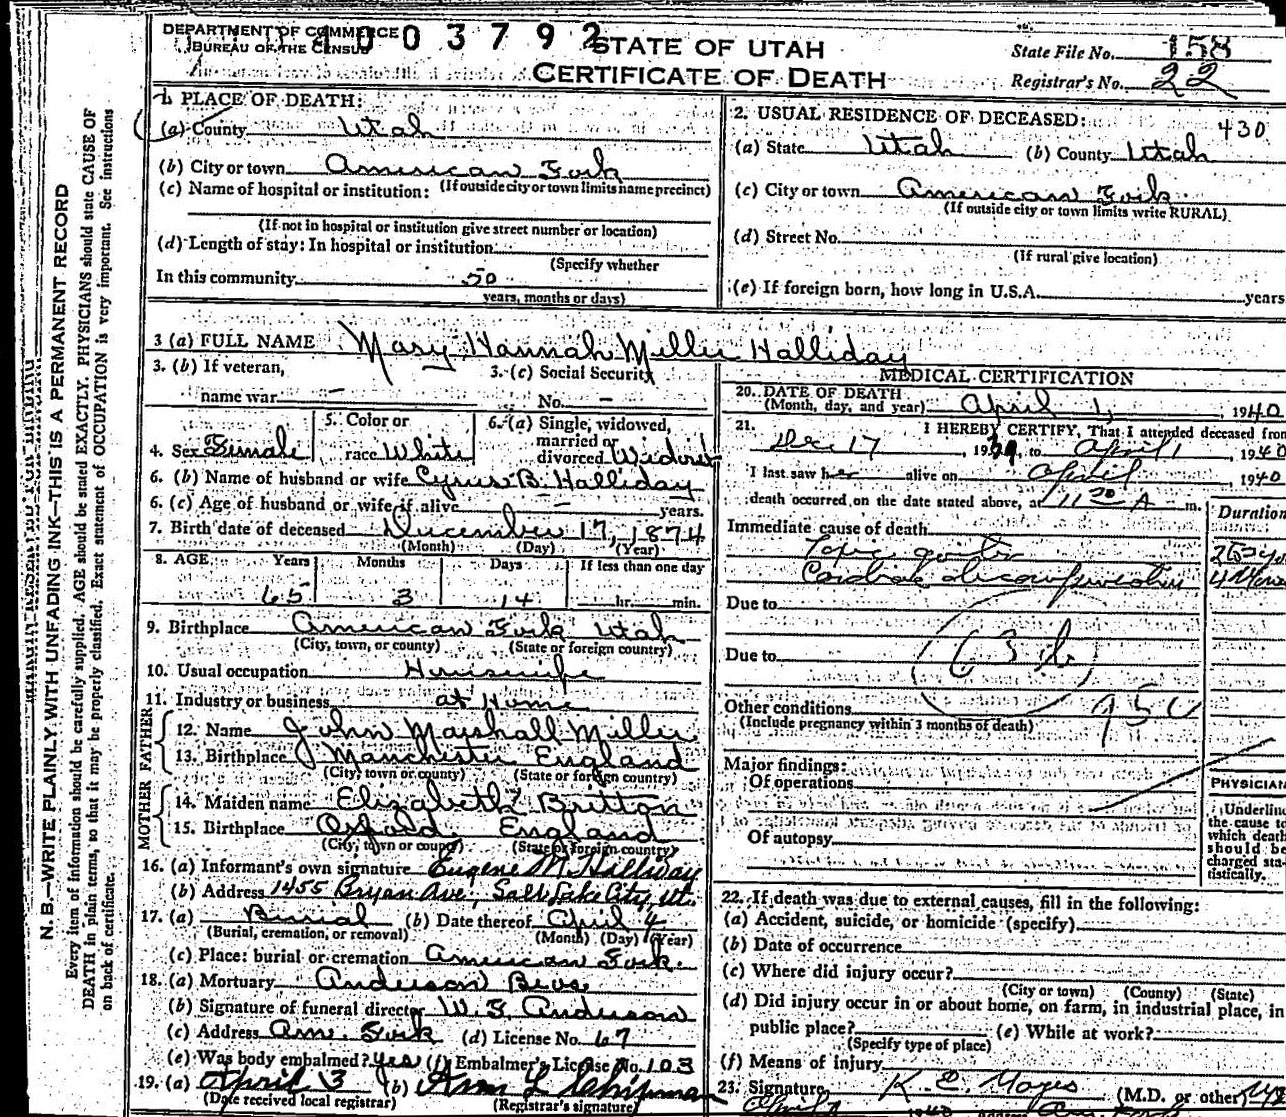 DEPARTMENT OF COMMERCE
BUREAU OF THE CENSUS
1003792
STATE OF UTAH
CERTIFICATE OF DEATH
State File No. 158
Registrar's No. 22
N.B.—WRITE PLAINLY, WITH UNFADING INK—THIS IS A PERMANENT RECORD
Every item of information should be carefully supplied. AGE should be stated EXACTLY. PHYSICIANS should state CAUSE OF
DEATH in plain terms, so that it may be properly classified. Exact statement of OCCUPATION is very important. See instructions
on back of certificate.
1. PLACE OF DEATH:
(a) County Utah
(b) City or town American Fork
(If outside city or town limits name precinct)
(c) Name of hospital or institution:
(If not in hospital or institution give street number or location)
(d) Length of stay: In hospital or institution
(Specify whether
In this community 50
years, months or days)
2. USUAL RESIDENCE OF DECEASED: 430
(a) State Utah (b) County Utah
(c) City or town American Fork
(If outside city or town limits write RURAL)
(d) Street No.
(If rural give location)
(e) If foreign born, how long in U.S.A. years
3 (a) FULL NAME Mary Hannah Miller Halliday
3. (b) If veteran,
name war –
3. (c) Social Security
No. –
4. Sex Female
5. Color or
race White
6. (a) Single, widowed,
married or
divorced Widow
6. (b) Name of husband or wife Cyrus B. Halliday
6. (c) Age of husband or wife if alive – years.
7. Birth date of deceased December 17, 1874
(Month) (Day) (Year)
8. AGE Years Months Days If less than one day
65 3 14 hr. min.
9. Birthplace American Fork, Utah
(City, town, or county) (State or foreign country)
10. Usual occupation Housewife
11. Industry or business at Home
FATHER
12. Name John Marshall Miller
13. Birthplace Manchester England
(City, town or county) (State or foreign country)
MOTHER
14. Maiden name Elizabeth Britton
15. Birthplace England
(City, town or county) (State or foreign country)
16. (a) Informant's own signature Eugene M. Halliday
(b) Address 1455 Bryan Ave, Salt Lake City, Ut.
17. (a) Burial (b) Date thereof April 4
(Burial, cremation, or removal) (Month) (Day) (Year)
(c) Place: burial or cremation American Fork.
18. (a) Mortuary Anderson Bros
(b) Signature of funeral director W. E. Anderson
(c) Address Am. Fork (d) License No. 67
(e) Was body embalmed? yes (f) Embalmer's License No. 103
19. (a) April 3 (b)
(Date received local registrar) (Registrar's signature)
MEDICAL CERTIFICATION
20. DATE OF DEATH
(Month, day, and year) April 1, 1940
21. I HEREBY CERTIFY, That I attended deceased from
Dec 17, 1939, to April 1, 1940
I last saw her alive on April, 1940
death occurred on the date stated above, at 11 20 A m.
Duration
Immediate cause of death
Toxic goiter
Cardiac decompensation
Due to
63b
Due to
Other conditions
(Include pregnancy within 3 months of death)
Major findings:
Of operations
Of autopsy
PHYSICIAN
Underline
the cause to
which death
should be
charged sta-
tistically.
22. If death was due to external causes, fill in the following:
(a) Accident, suicide, or homicide (specify)
(b) Date of occurrence
(c) Where did injury occur?
(City or town) (County) (State)
(d) Did injury occur in or about home, on farm, in industrial place, in
public place? (e) While at work?
(Specify type of place)
(f) Means of injury
23. Signature K. E. Noyes (M.D. or other)